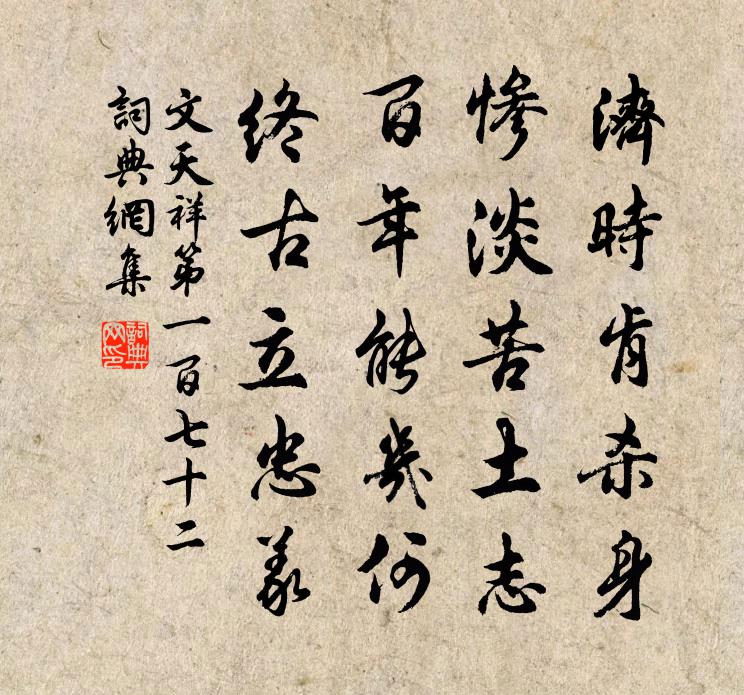 濟時肯杀身
慘淡苦土志
百年能幾何
終古立忠義
文天祥第一百七十二
詞典網集
詞典网印